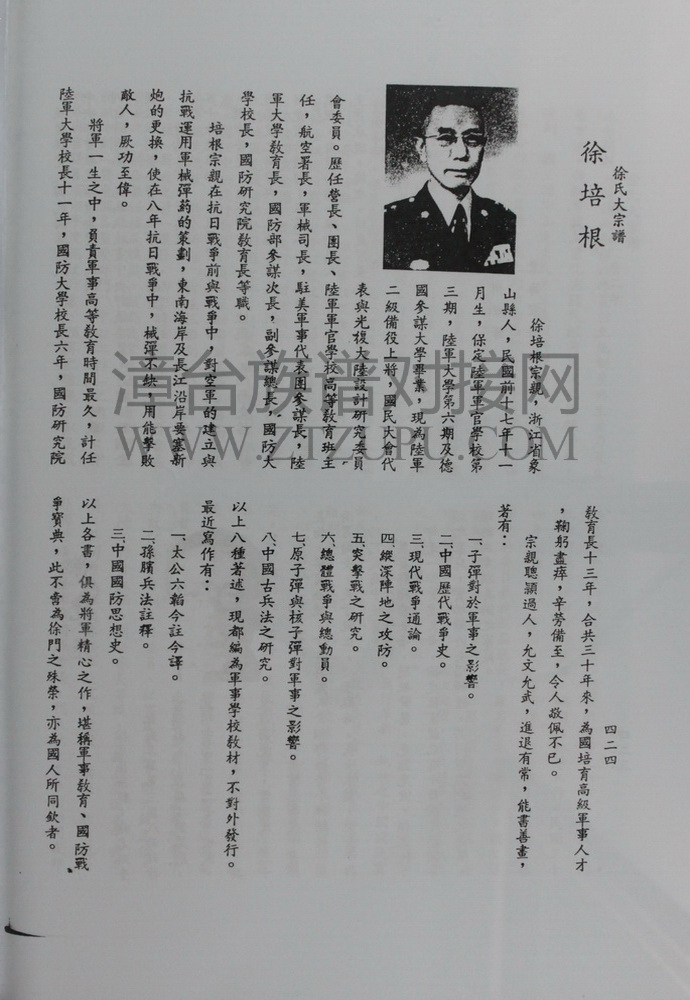 徐氏大宗譜
徐培根
徐培根宗親，浙江省象
山縣人，民國前十七年十一
月生，保定陸軍軍官學校第
三期，陸軍大學第六期及德
國參謀大學畢業，現為陸軍
二級備役上將，國民大會代
表與光復大陸設計研究委員
會委員。歷任營長、團長、陸軍軍官學校高等教育班主
任，航空署長，軍械司長，駐美軍事代表團參謀長，陸
軍大學教育長，國防部參謀次長，副參謀總長，國防大
學校長，國防研究院教育長等職。
培根宗親在抗日戰爭前與戰爭中，對空軍的建立與
抗戰運用軍械彈葯的策劃，東南海岸及長江沿岸要塞新
炮的更換，使在八年抗日戰爭中，械彈不缺，用能擊敗
敵人，厥功至偉。
將軍一生之中，負責軍事高等教育時間最久，計任
陸軍大學校長十一年，國防大學校長六年，國防研究院
四二四
教育長十三年，合共三十年來，為國培育高級軍事人才
，鞠躬盡瘁，辛勞備至，令人敬佩不已。
宗親聰穎過人，允文允武，進退有常，能書善畫，
著有：
一、子彈對於軍事之影響。
二、中國歷代戰爭史。
三、現代戰爭通論。
四、縱深陣地之攻防。
五、突擊戰之研究。
六、總體戰爭與總動員。
七、原子彈與核子彈對軍事之影響。
八、中國古兵法之研究。
以上八種著述，現都編為軍事學校教材，不對外發行。
最近寫作有：
一、太公六韜今註今譯。
二、孫臏兵法註釋。
三、中國國防思想史。
以上各書，俱為將軍精心之作，堪稱軍事教育、國防戰
爭寶典，此不啻為徐門之殊榮，亦為國人所同欽者。
漳台族谱对接网
WWW.ZTZUPU.COM